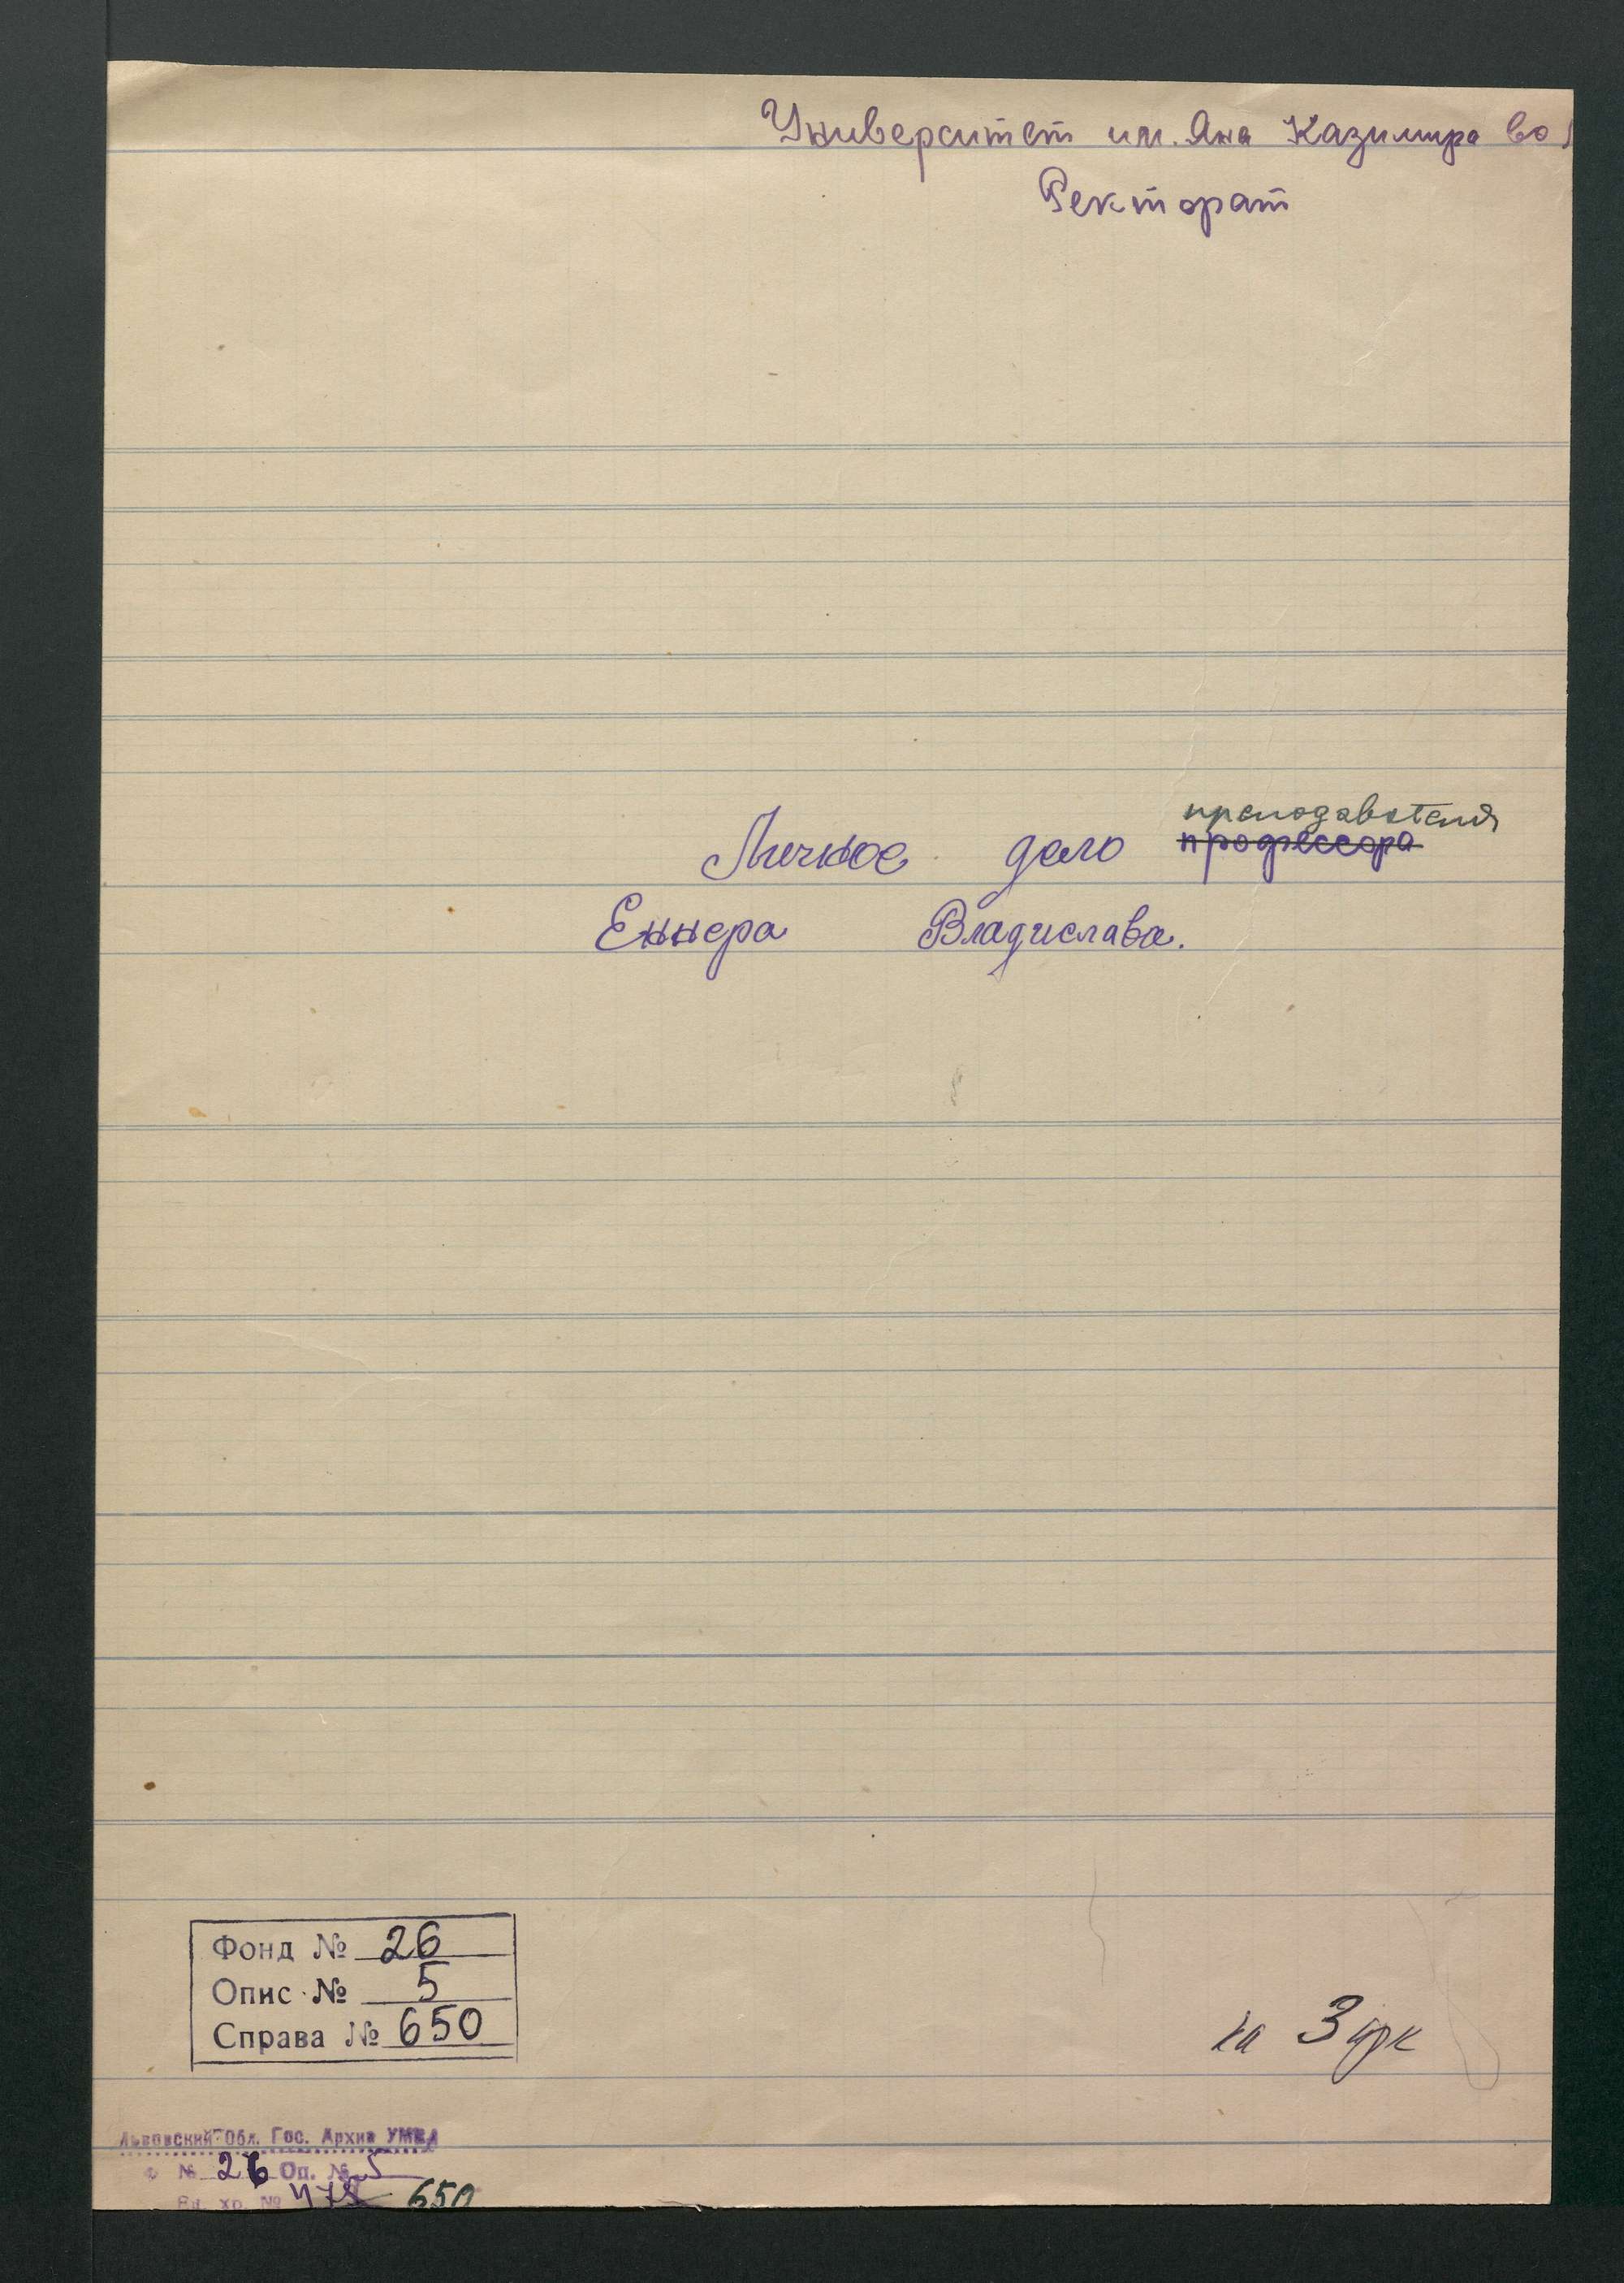 Университет им. Яна Казимира во
Ректорат
преподавателя
Личное дело профессора
Еннера Владислава.
Фонд № 26
Опис № 5
Справа № 650
на 3 арк
Львовский Обл. Гос. Архив УМВД
Ф № 26 Оп. № 5
Ед. хр. № 478 650